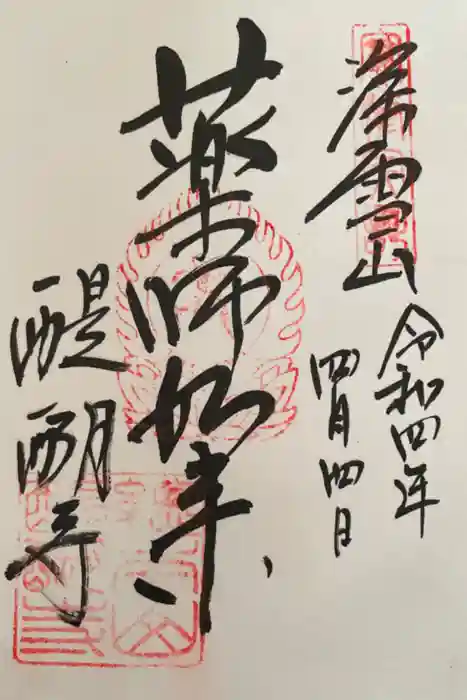 深雪山
令和四年
四月四日
薬師如来
醍醐寺